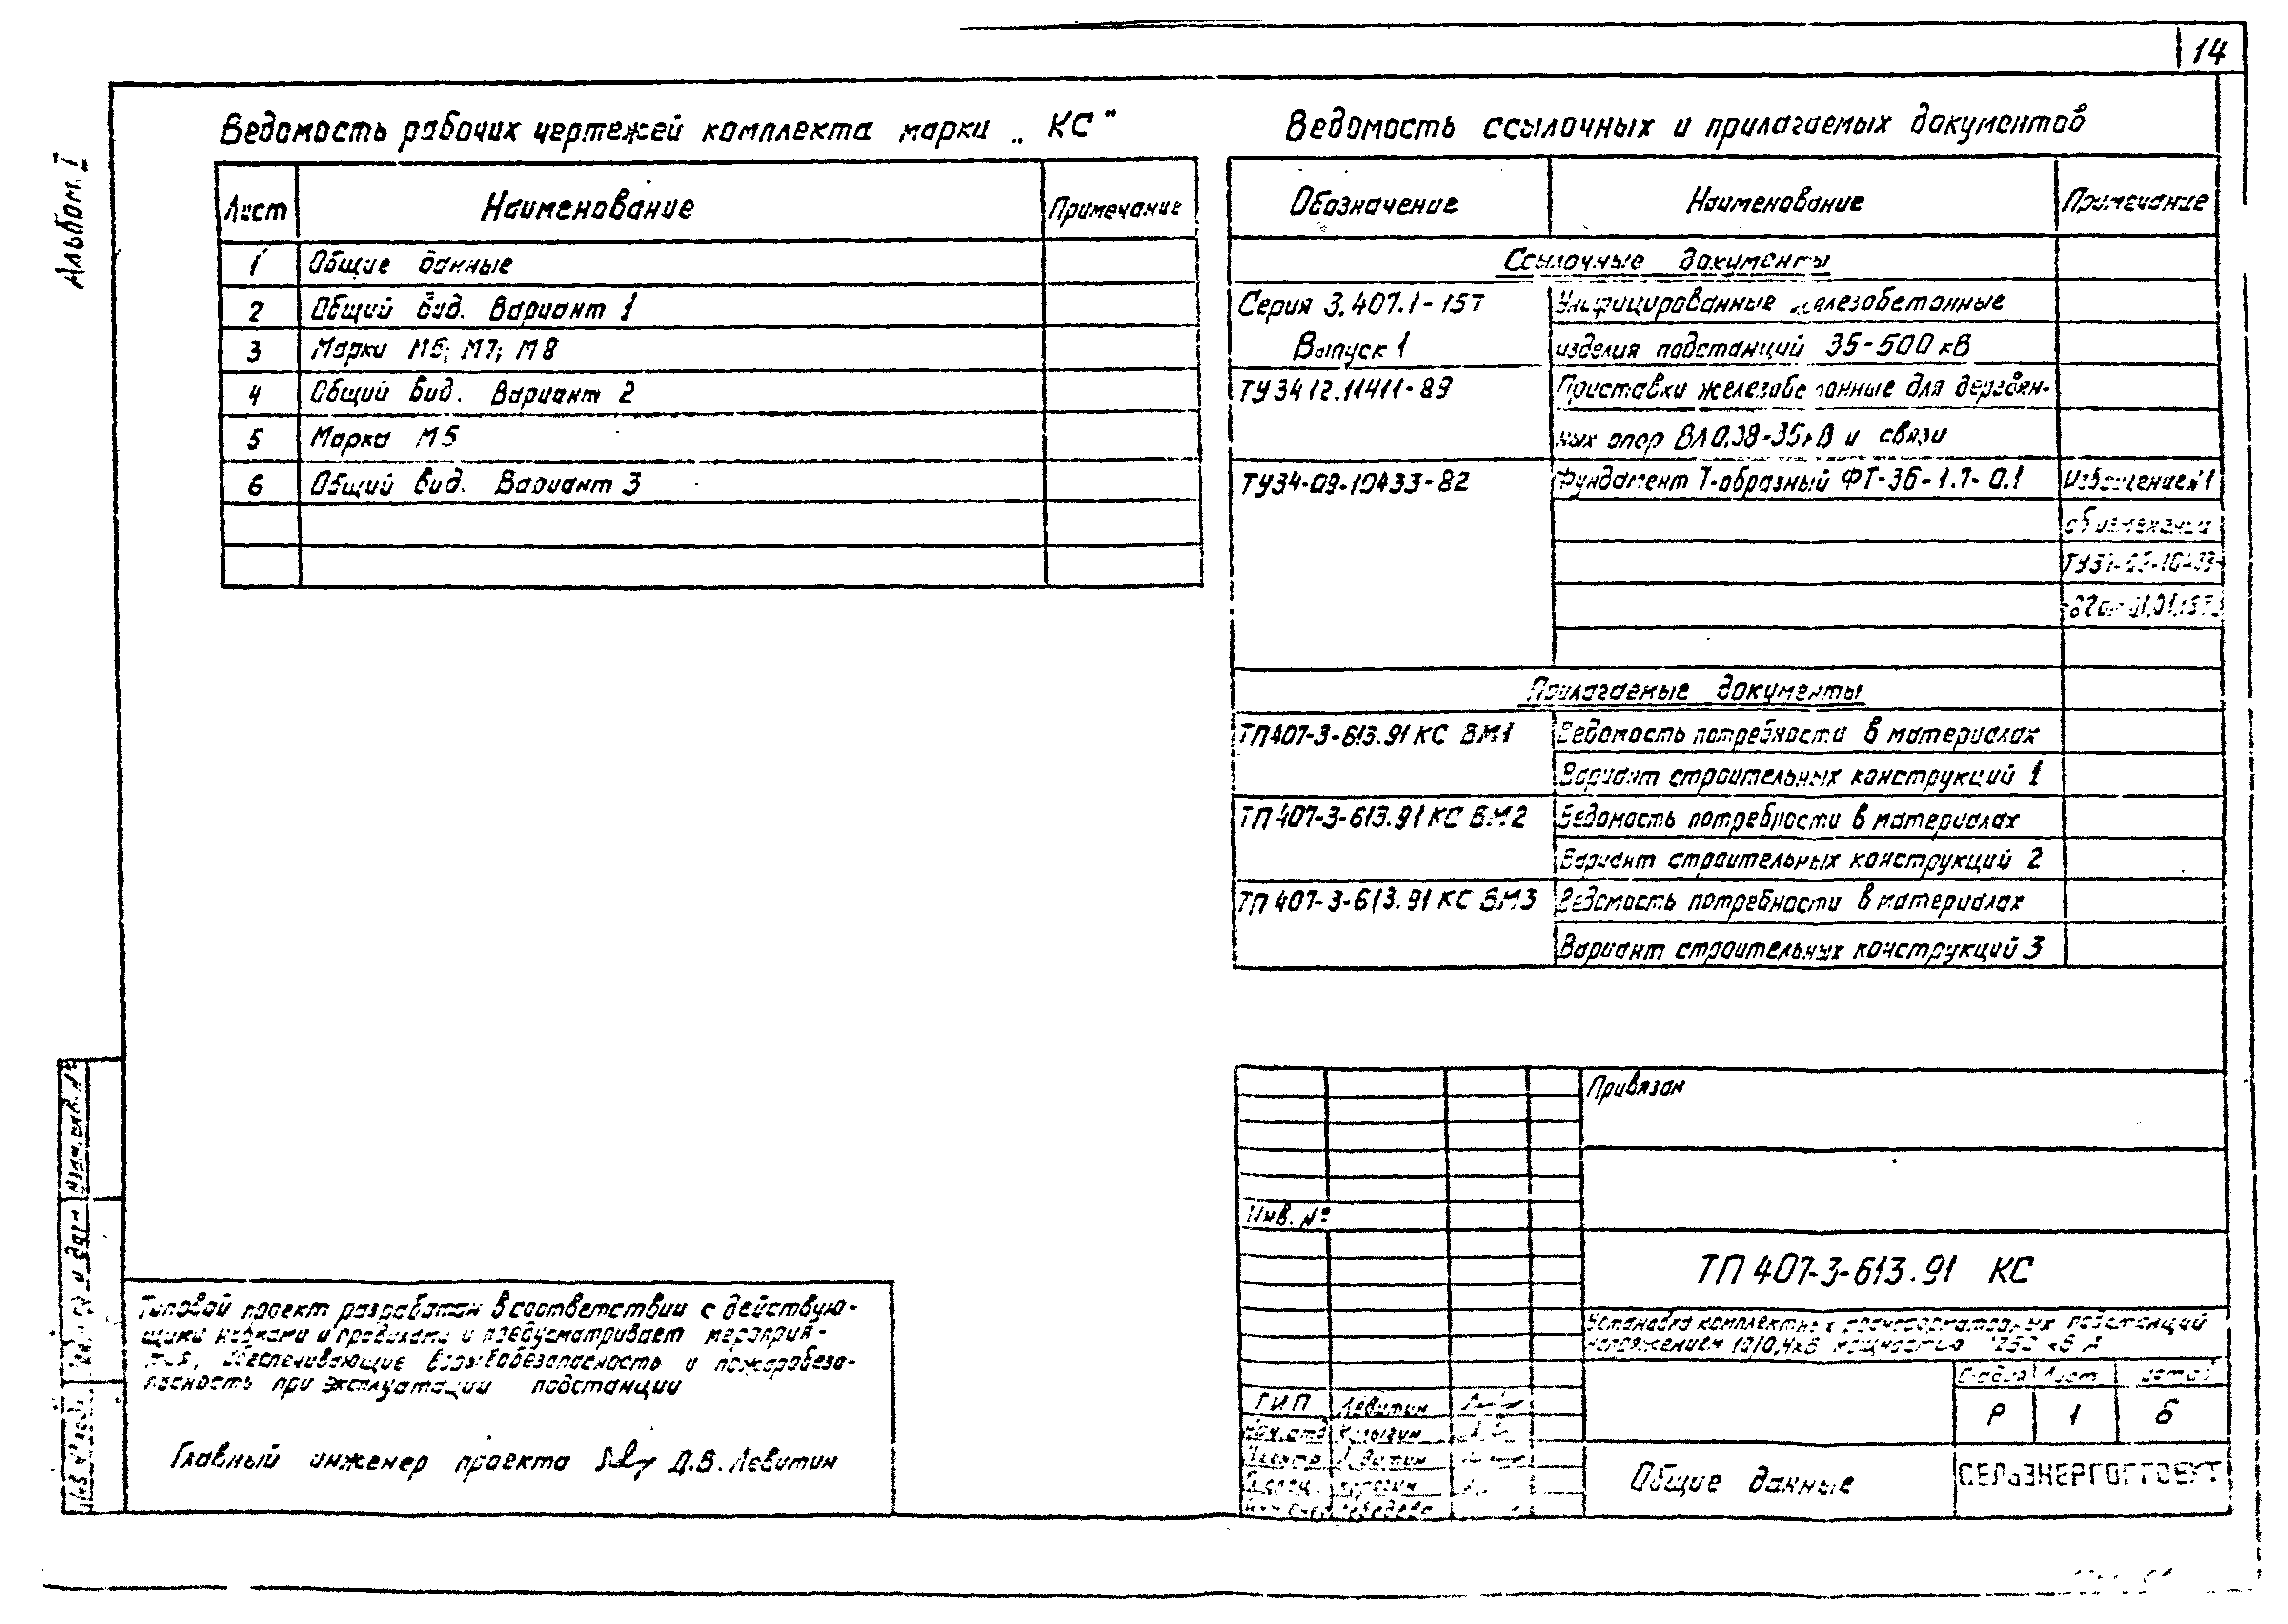 14
Альбом. I
Ведомость рабочих чертежей комплекта марки „ КС"
Лист Наименование Примечание
1 Общие данные
2 Общий вид. Вариант 1
3 Марки М6; М7; М8
4 Общий вид. Вариант 2
5 Марка М5
6 Общий вид. Вариант 3
Ведомость ссылочных и прилагаемых документов
Обозначение Наименование Примечание
Ссылочные документы
Серия 3.407.1-157 Унифицированные железобетонные
Выпуск 1 изделия подстанций 35-500 кВ
ТУ 34 12.11411-89 Приставки железобетонные для деревян-
ных опор ВЛ 0,38-35кВ и связи
ТУ34-09-10433-82 Фундамент Т-образный Извещение№1
об изменении
ТУ34-09-10433-
-82 от 01.01.
Прилагаемые документы
ТП407-3-613.91 КС ВМ1 Ведомость потребности в материалах
Вариант строительных конструкций 1
ТП 407-3-613.91 КС ВМ2 Ведомость потребности в материалах
Вариант строительных конструкций 2
ТП 407-3-613.91 КС ВМ3 Ведомость потребности в материалах
Вариант строительных конструкций 3
Взам. инв. №
Подп. и дата
Инв. № подл.
Типовой проект разработан в соответствии с действую-
щими нормами и правилами и предусматривает мероприя-
тия, обеспечивающие взрывобезопасность и пожаробезо-
пасность при эксплуатации подстанции
Главный инженер проекта Д.В. Левитин
Привязан
Инв. №
ТП 407-3-613.91 КС
Установка комплектных трансформаторных подстанций
напряжением 10/0,4кВ мощностью кВ А
Стадия Лист Листов
Р 1 6
ГИП Левитин
Нач.отд
Н.контр Левитин
Общие данные
СЕЛЬЭНЕРГОПРОЕКТ